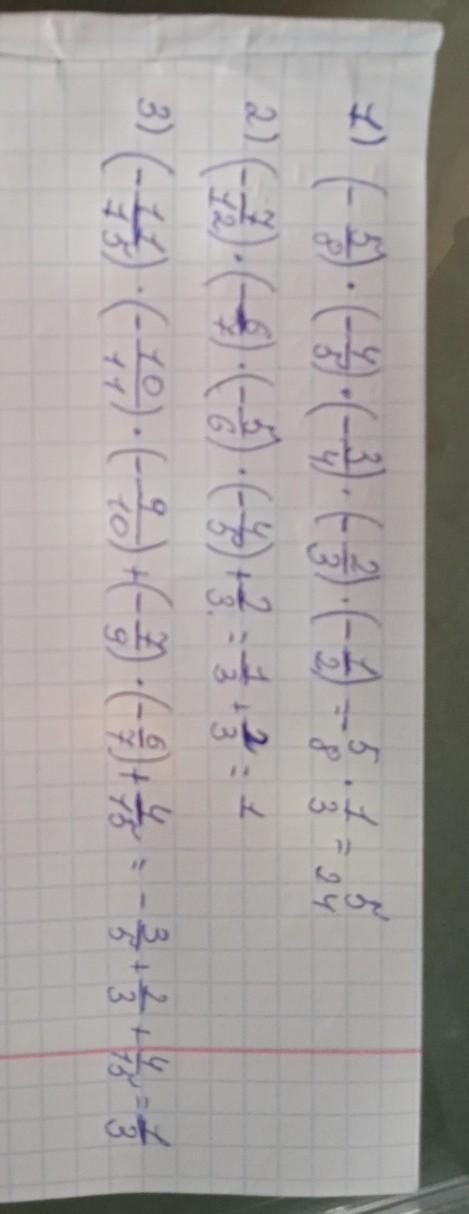 1) (-5/8) · (-4/5) · (-3/4) · (-2/3) · (-1/2) = 5/8 · 1/3 = 5/24
2) (-7/12) · (-6/7) · (-5/6) · (-4/5) + 2/3 = 1/3 + 2/3 = 1
3) (-11/15) · (-10/11) · (-9/10) + (-7/9) · (-6/7) + 4/15 = -3/5 + 2/3 + 4/15 = 1/3